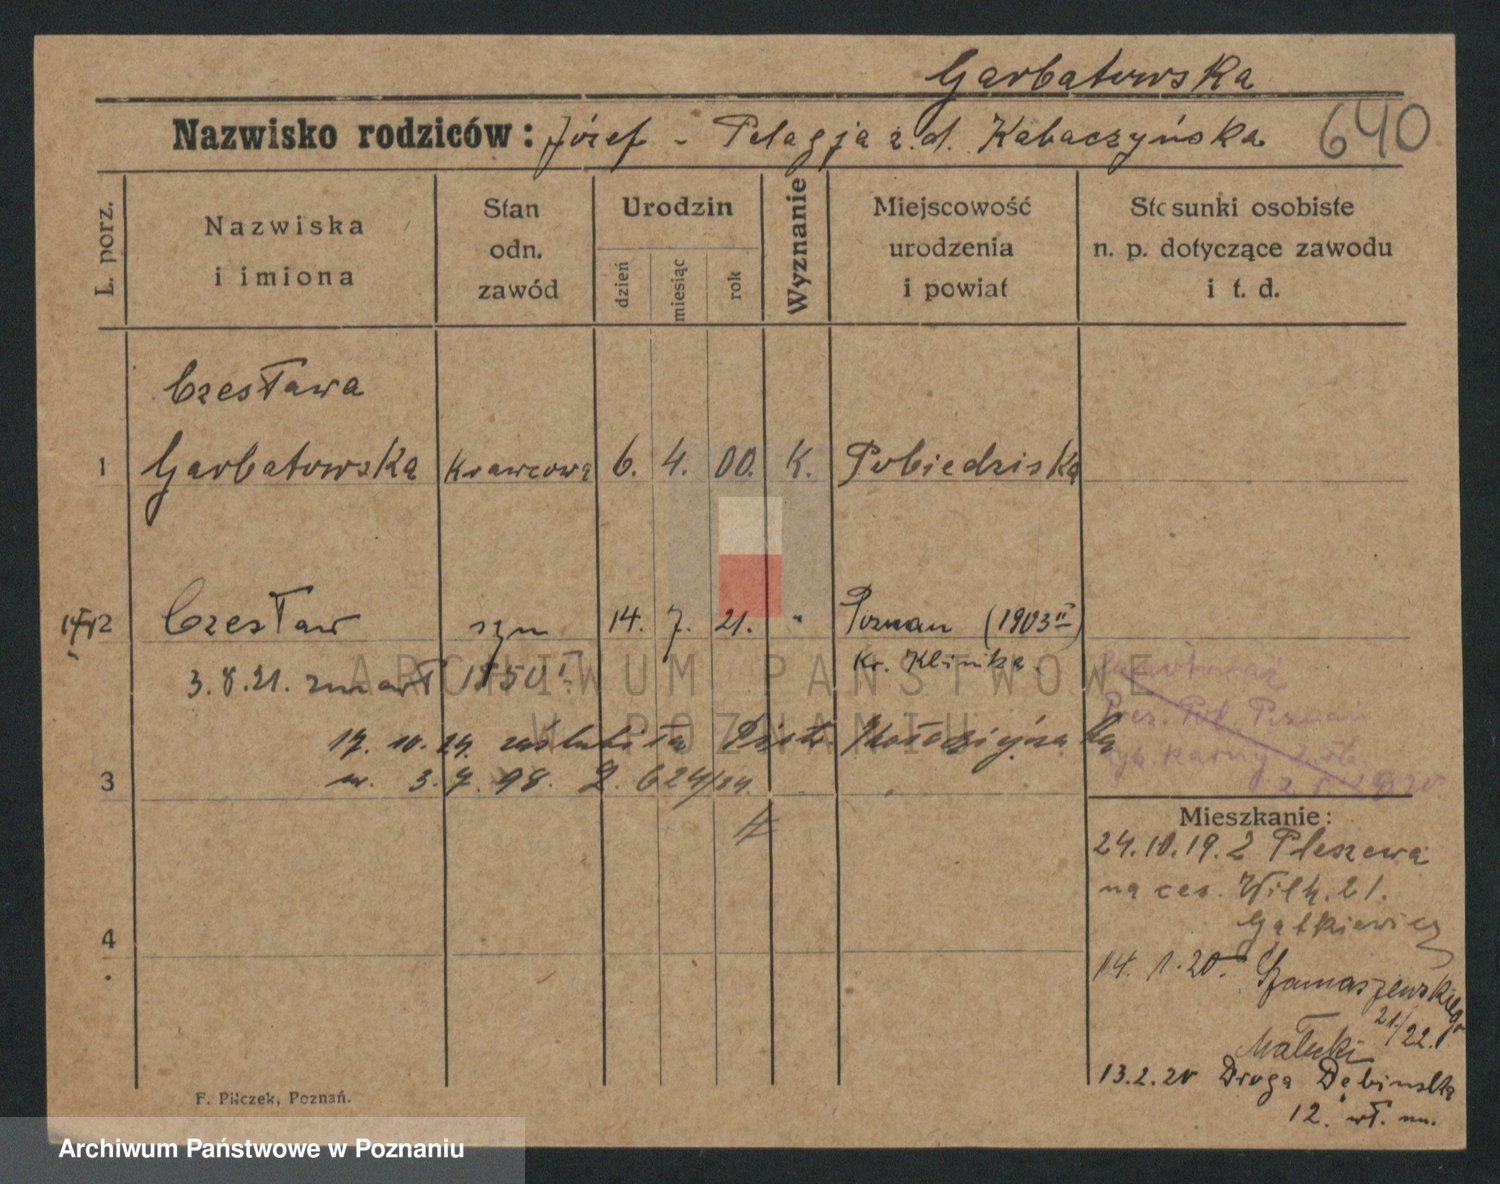 Garbatowska
Nazwisko rodziców: Józef - Pelagja z.d. Kabaczyńska
640
L. porz.
Nazwiska
i imiona
Stan
odn.
zawód
Urodzin
dzień
miesiąc
rok
Wyznanie
Miejscowość
urodzenia
i powiat
Stosunki osobiste
n. p. dotyczące zawodu
i t. d.
Czesława
1 Garbatowska Krawcowa 6. 4. 00. K. Pobiedziska
2 Czesław syn 14. 7. 21. " Poznan (1903 II)
Kr. Klinika.
3. 8. 21. zmarł 1850 I
17. 10. 24. zaślubiła Piotr
ur. 3. 7. 98. 2. 624/24.
3
Poznań
Mieszkanie:
24. 10. 19. z Pleszewa
na ces. Wilh. 21.
Gątkiewicz
4
14. 1. 20. Szamarzewskiego
21/22.
Małecki
13. 2. 20 Droga Dębinska
12. wł. m.
F. Pilczek, Poznań.
ARCHIWUM PAŃSTWOWE
W POZNANIU
Archiwum Państwowe w Poznaniu